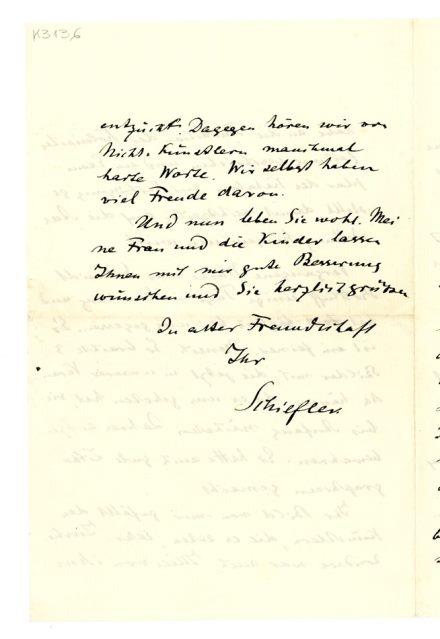 K313,6
entzückt. Dagegen hören wir von
Nicht-Künstlern manchmal
harte Worte. Wir selbst haben
viel Freude davon.
Und nun leben Sie wohl. Mei
ne Frau und die Kinder lassen
Ihnen mit mir gute Besserung
wünschen und Sie herzlich grüßen
In alter Freundschaft
Ihr
Schiefler